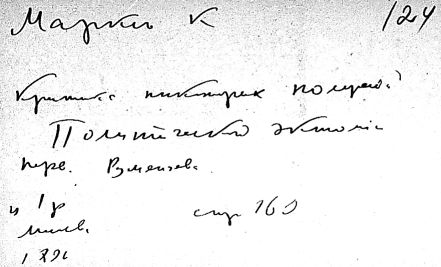 Маркс К 124
Критика некоторых полож.
Политической экономии
перев. Румянцева
ц 1 р
стр 160
1896